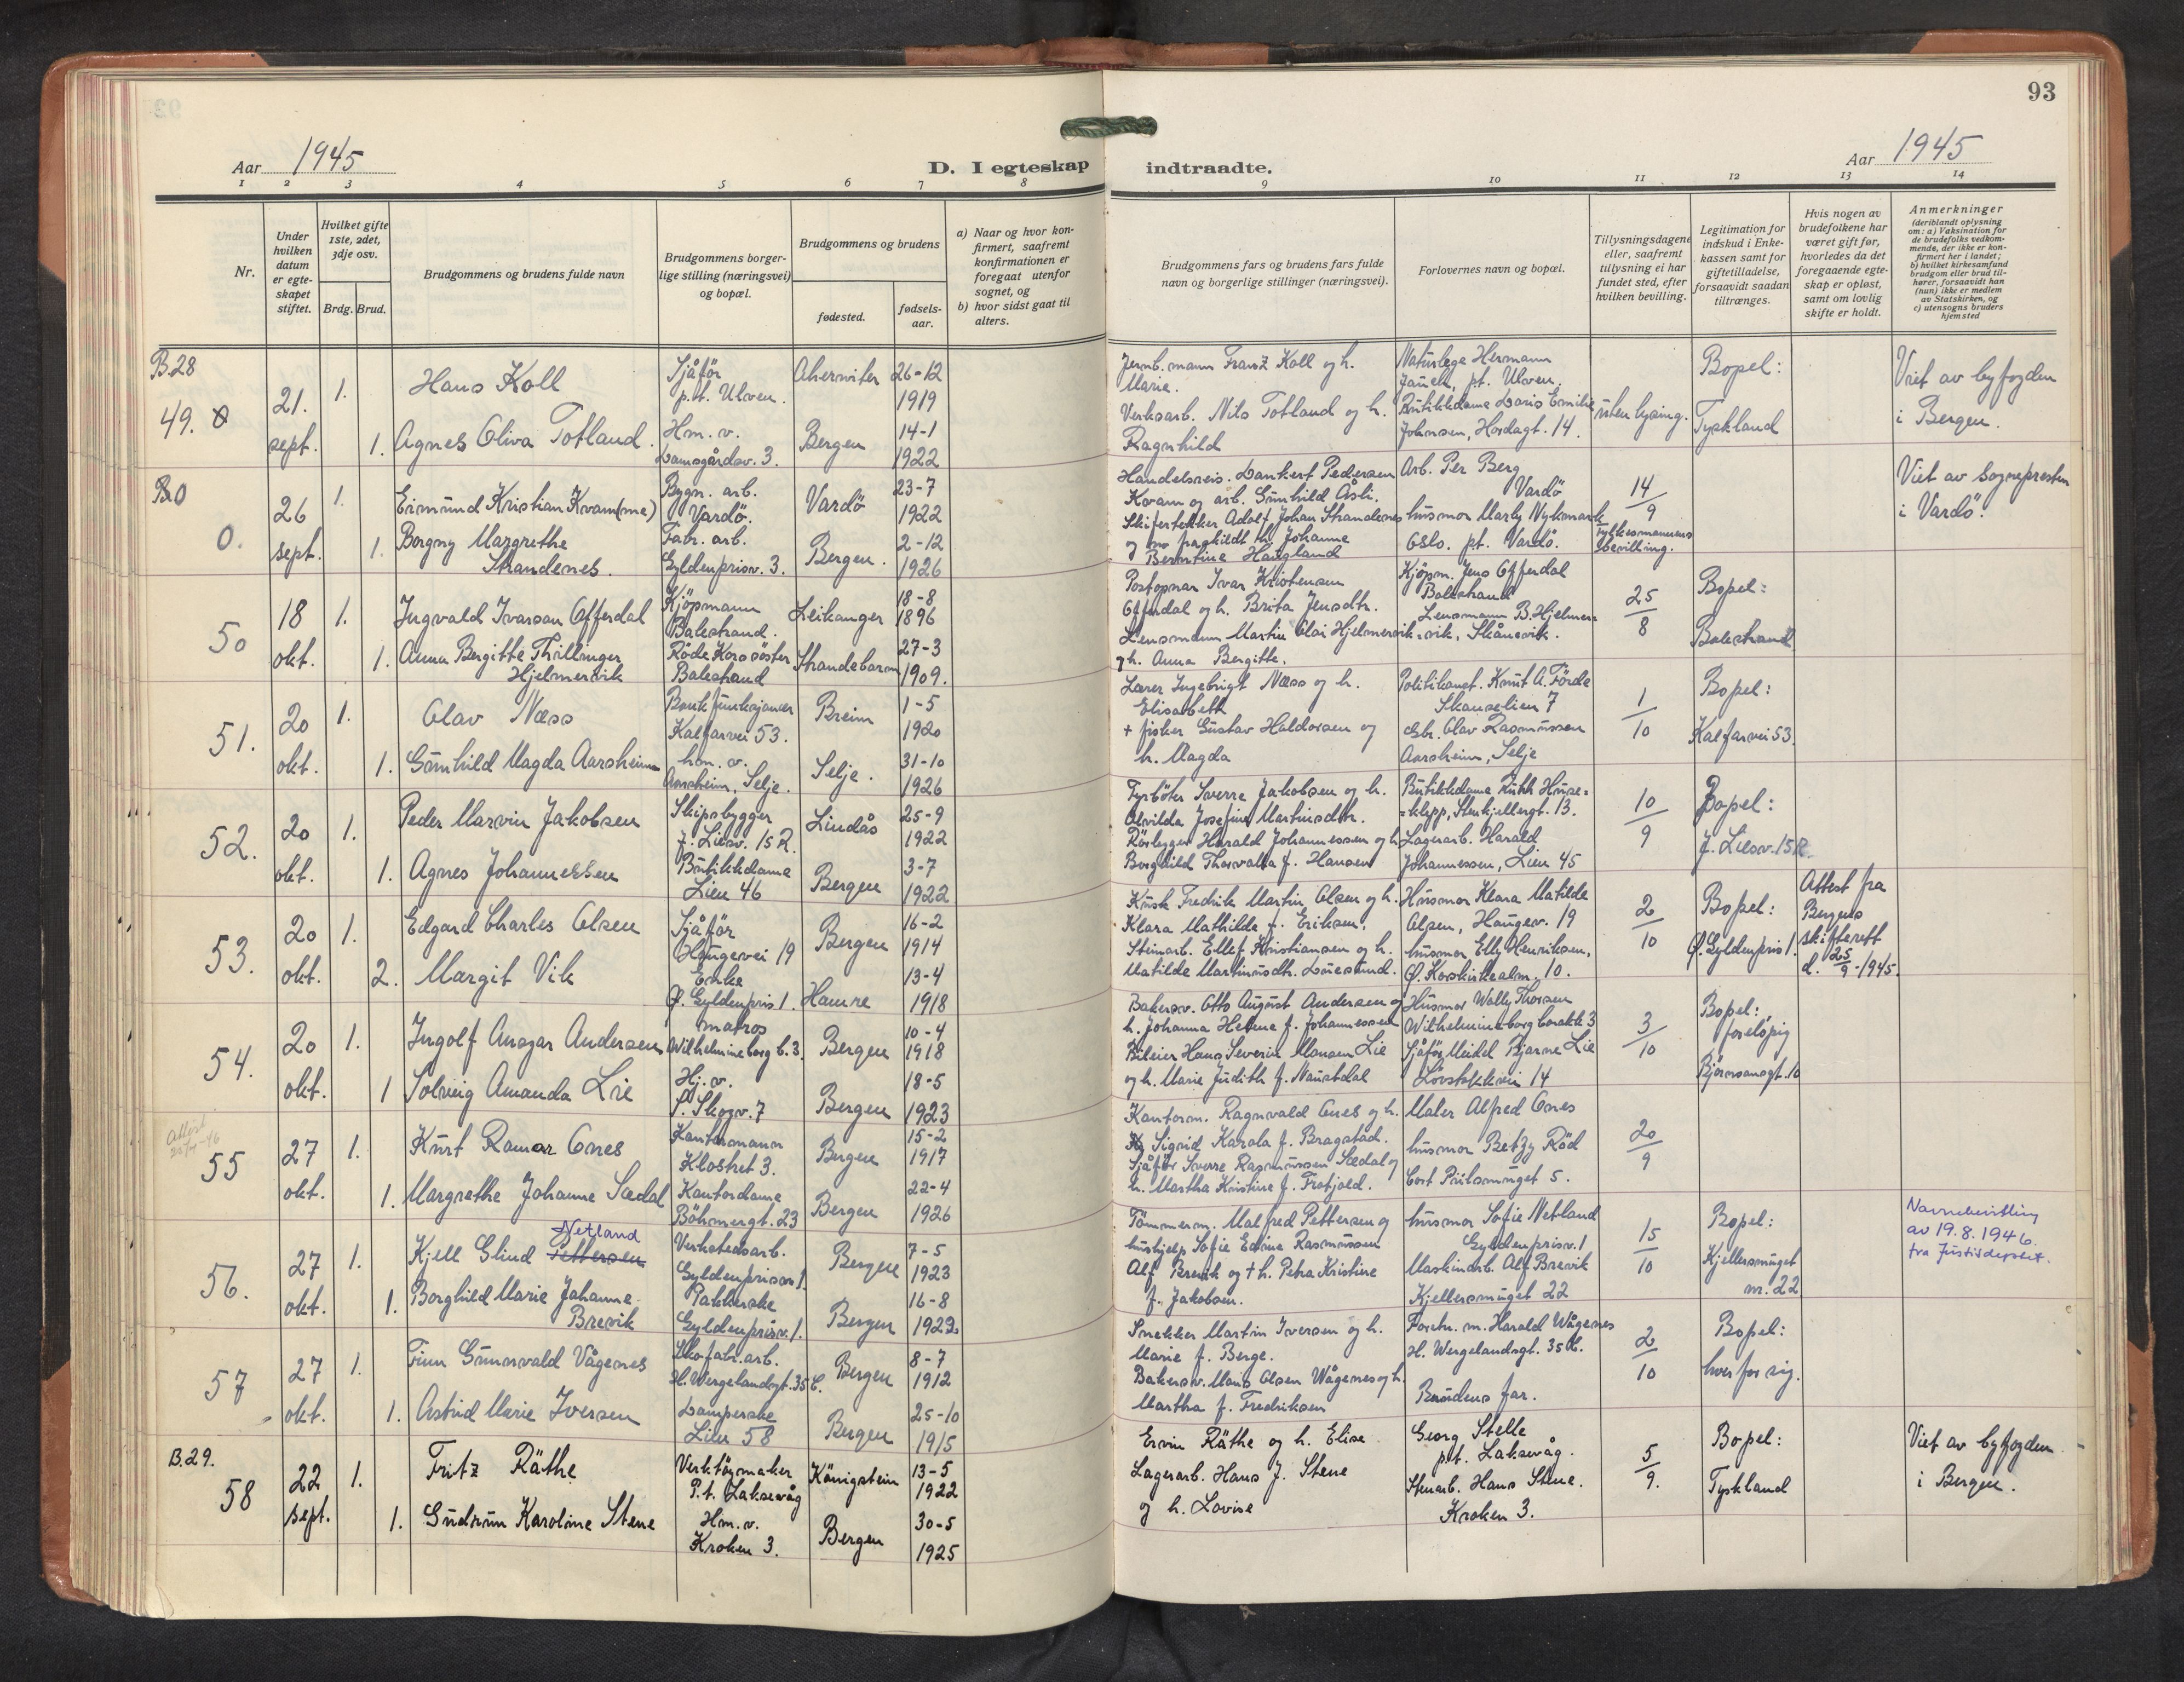 93
Aar 1945
D. I egteskap indtraadte.
Aar 1945
1 2 3 4 5 6 7 8 9 10 11 12 13 14
Nr.
Under hvilken datum er egte-skapet stiftet.
Hvilket gifte 1ste, 2det, 3dje osv.
Brdg. Brud.
Brudgommens og brudens fulde navn
Brudgommens borger-lige stilling (næringsvei) og bopæl.
Brudgommens og brudens
fødested.
fødsels-aar.
a) Naar og hvor kon-firmert, saafremt konfirmationen er foregaat utenfor sognet, og
b) hvor sidst gaat til alters.
Brudgommens fars og brudens fars fulde navn og borgerlige stillinger (næringsvei).
Forlovernes navn og bopæl.
Tillysningsdagene eller, saafremt tillysning ei har fundet sted, efter hvilken bevilling.
Legitimation for indskud i Enke-kassen samt for giftetilladelse, forsaavidt saadan tiltrænges.
Hvis nogen av brudefolkene har været gift før, hvorledes da det foregaaende egte-skap er opløst, samt om lovlig skifte er holdt.
Anmerkninger
(deriblandt oplysning om: a) Vaksination for de brudefolks vedkom-mende, der ikke er kon-firmert her i landet; b) hvilket kirkesamfund brudgom eller brud til-hører, forsaavidt han (hun) ikke er medlem av Statskirken, og c) utensogns bruders hjemsted
B.28
49. 21. sept.
1. Hans Koll Sjåför p.t. Ulven. 26-12 1919
Jernb.mann Franz Koll og h. Marie.
Naturlege Hermann pt. Ulven.
1. Agnes Oliva Totland. Hm. v. Damsgårdsv. 3. Bergen 14-1 1922
Verksarb. Nils Totland og h. Ragnhild
Butikkdame Doris Emilie Johnsen, Hordagt. 14.
uten lysing.
Bopel: Tyskland
Viet av byfogden i Bergen.
0. 26 sept.
1. Eimund Kristian Kvam(me) Bygn. arb. Vardö. Vardö 23-7 1922
Handelsreis. Dankert Pedersen Kvam og arb. Gunhild Åsli.
Arb. Per Berg Vardö
1. Borgny Margrethe Strandenes. Fabr. arb. Gyldenprisv. 3. Bergen. 2-12 1926
Skifertekker Adolf Johan Strandenes og fraskildt h. Johanne Berntine Haugland
husmor Marly Nykmark Oslo. pt. Vardö.
14/9
Fylkesmannens bevilling.
Viet av Sognepresten i Vardö.
50 18 okt.
1. Ingvald Ivarson Offerdal Kjöpmann Balestrand. Leikanger 18-8 1896
Postopnar Ivar Kristensen Offerdal og h. Brita Jensdtr.
Kjöpm. Jens Offerdal Balestrand
1. Anna Bergitte Thillinger Hjelmervik Röde Kors söster Balestrand Strandebarm 27-3 1909.
Lensmann Martin Olai Hjelmervik og h. Anna Bergitte.
Lensmann B. Hjelmer=vik, Skånevik.
25/8
Bopel: Balestrand
51. 20 okt.
1. Olav Næss Bankfunksjonær Kalfarvei 53. Breim 1-5 1920
Lærer Ingebrigt Næss og h. Elisabeth
Politikonst. Knut A. Förde Skanselien 7
1. Gunhild Magda Aarsheim hm. v. Aarsheim, Selje. Selje. 31-10 1926
+ fisker Gustav Haldorsen og h. Magda
Gbr. Olav Rasmussen Aarsheim, Selje
1/10
Bopel: Kalfarvei 53.
52. 20 okt.
1. Peder Marvin Jakobsen Skipsbygger J. Liesv. 15 R. Lindås 25-9 1922
Fyrböter Sverre Jakobsen og h. Alvilda Josefine Martinsdtr.
Butikkdame Ruth Huse=klepp, Stenkjellergt. 13.
1. Agnes Johannessen Butikkdame Lien 46 Bergen 3-7 1922
Rörlegger Harald Johannessen og h. Borghild Thorvalda f. Hansen
Lagerarb. Harald Johannessen, Lien 45
10/9
Bopel: J. Liesv. 15 R.
53. 20 okt.
1. Edgard Charles Olsen Sjåför Haugevei 19 Bergen 16-2 1914
Kusk Fredrik Martin Olsen og h. Klara Mathilde f. Eriksen.
Husmor Klara Matilde Olsen, Haugev. 19
2. Margit Vik Enke Ø. Gyldenpris 1. Hamre 13-4 1918
Steinarb. Ellef Kristiansen og h. Matilde Martinusdtr.
husmor Elly Henriksen, Ø. Korskirkealm. 10.
2/10
Bopel: Ø. Gyldenpris 1.
Attest fra Bergens skifterett d. 25/9-1945.
54. 20 okt.
1. Ingolf Ansgar Andersen matros Wilhelmineborg b. 3. Bergen 10-4 1918
Bakersv. Otto August Andersen og h. Johanna Helene f. Johannessen
Husmor Wally Thorsen Wilhelmineborg barakk 3
1 Solveig Amanda Lie Hj. v. S. Skogv. 7 Bergen 18-5 1923
Bileier Hans Severin Monsen Lie og h. Marie Judith f. Naustdal
Sjåför Meidel Bjarne Lie Lövstakkvei 14
3/10
Bopel: foreløpig Björnsonsgt. 10
Attest
55 27 okt.
1. Kurt Ramar Ones Kontormann Klostret 3. Bergen 15-2 1917
Kontorm. Ragnvald Ones og h. Sigrid Karola f. Bragstad.
Maler Alfred Ones
1. Margrethe Johanne Sædal Kontordame Böhmergt. 23 Bergen 22-4 1926
Sjåför Sverre Rasmussen Sædal og h. Martha Kristine f. Trotjold.
husmor Betzy Röd Cort Piilsmuget 5.
20/9
56. 27 okt.
1. Kjell Glind Pettersen Netland Verkstedsarb. Gyldenprisv. 1. Bergen 7-5 1923
Tömmerm. Malfred Pettersen og hushjelp Sofie Edine Rasmussen
husmor Sofie Netland Gyldenprisv. 1
1. Borghild Marie Johanne Brevik Pakkerske Gyldenprisv. 1. Bergen 16-8 1922.
Alf Brevik og + h. Petra Kristine f. Jakobsen.
Maskinarb. Alf Brevik Kjellersmuget 22
15/10
Bopel: Kjellersmuget nr. 22
Navnebevilling av 19.8.1946. fra Justisdeptet.
57 27 okt.
1. Finn Gunnvald Vågenes Skofabr.arb. H. Wergelandsgt. 35 C. Bergen 8-7 1912
Snekker Martin Iversen og h. Marie f. Berge.
Forstr. m. Harald Wågenes H. Wergelandsgt. 35 B.
1. Astrid Marie Iversen Damperske Lien 58 Bergen 25-10 1915
Bakersv. Mons Olsen Wågenes og h. Martha f. Fredriksen
Brudens far.
2/10
Bopel: hver for sig.
B.29.
58 22 sept.
1. Fritz Räthe Verktöymaker P.t. Laksevåg Königstein 13-5 1922
Ervin Räthe og h. Elise
Georg Stelle pt. Laksevåg.
1. Gudrun Karoline Stene Hm. v. Kroken 3. Bergen 30-5 1925
Lagerarb. Hans J. Stene og h. Lovise
Stenarb. Hans Stene. Kroken 3.
5/9.
Bopel: Tyskland
Viet av byfogden i Bergen.